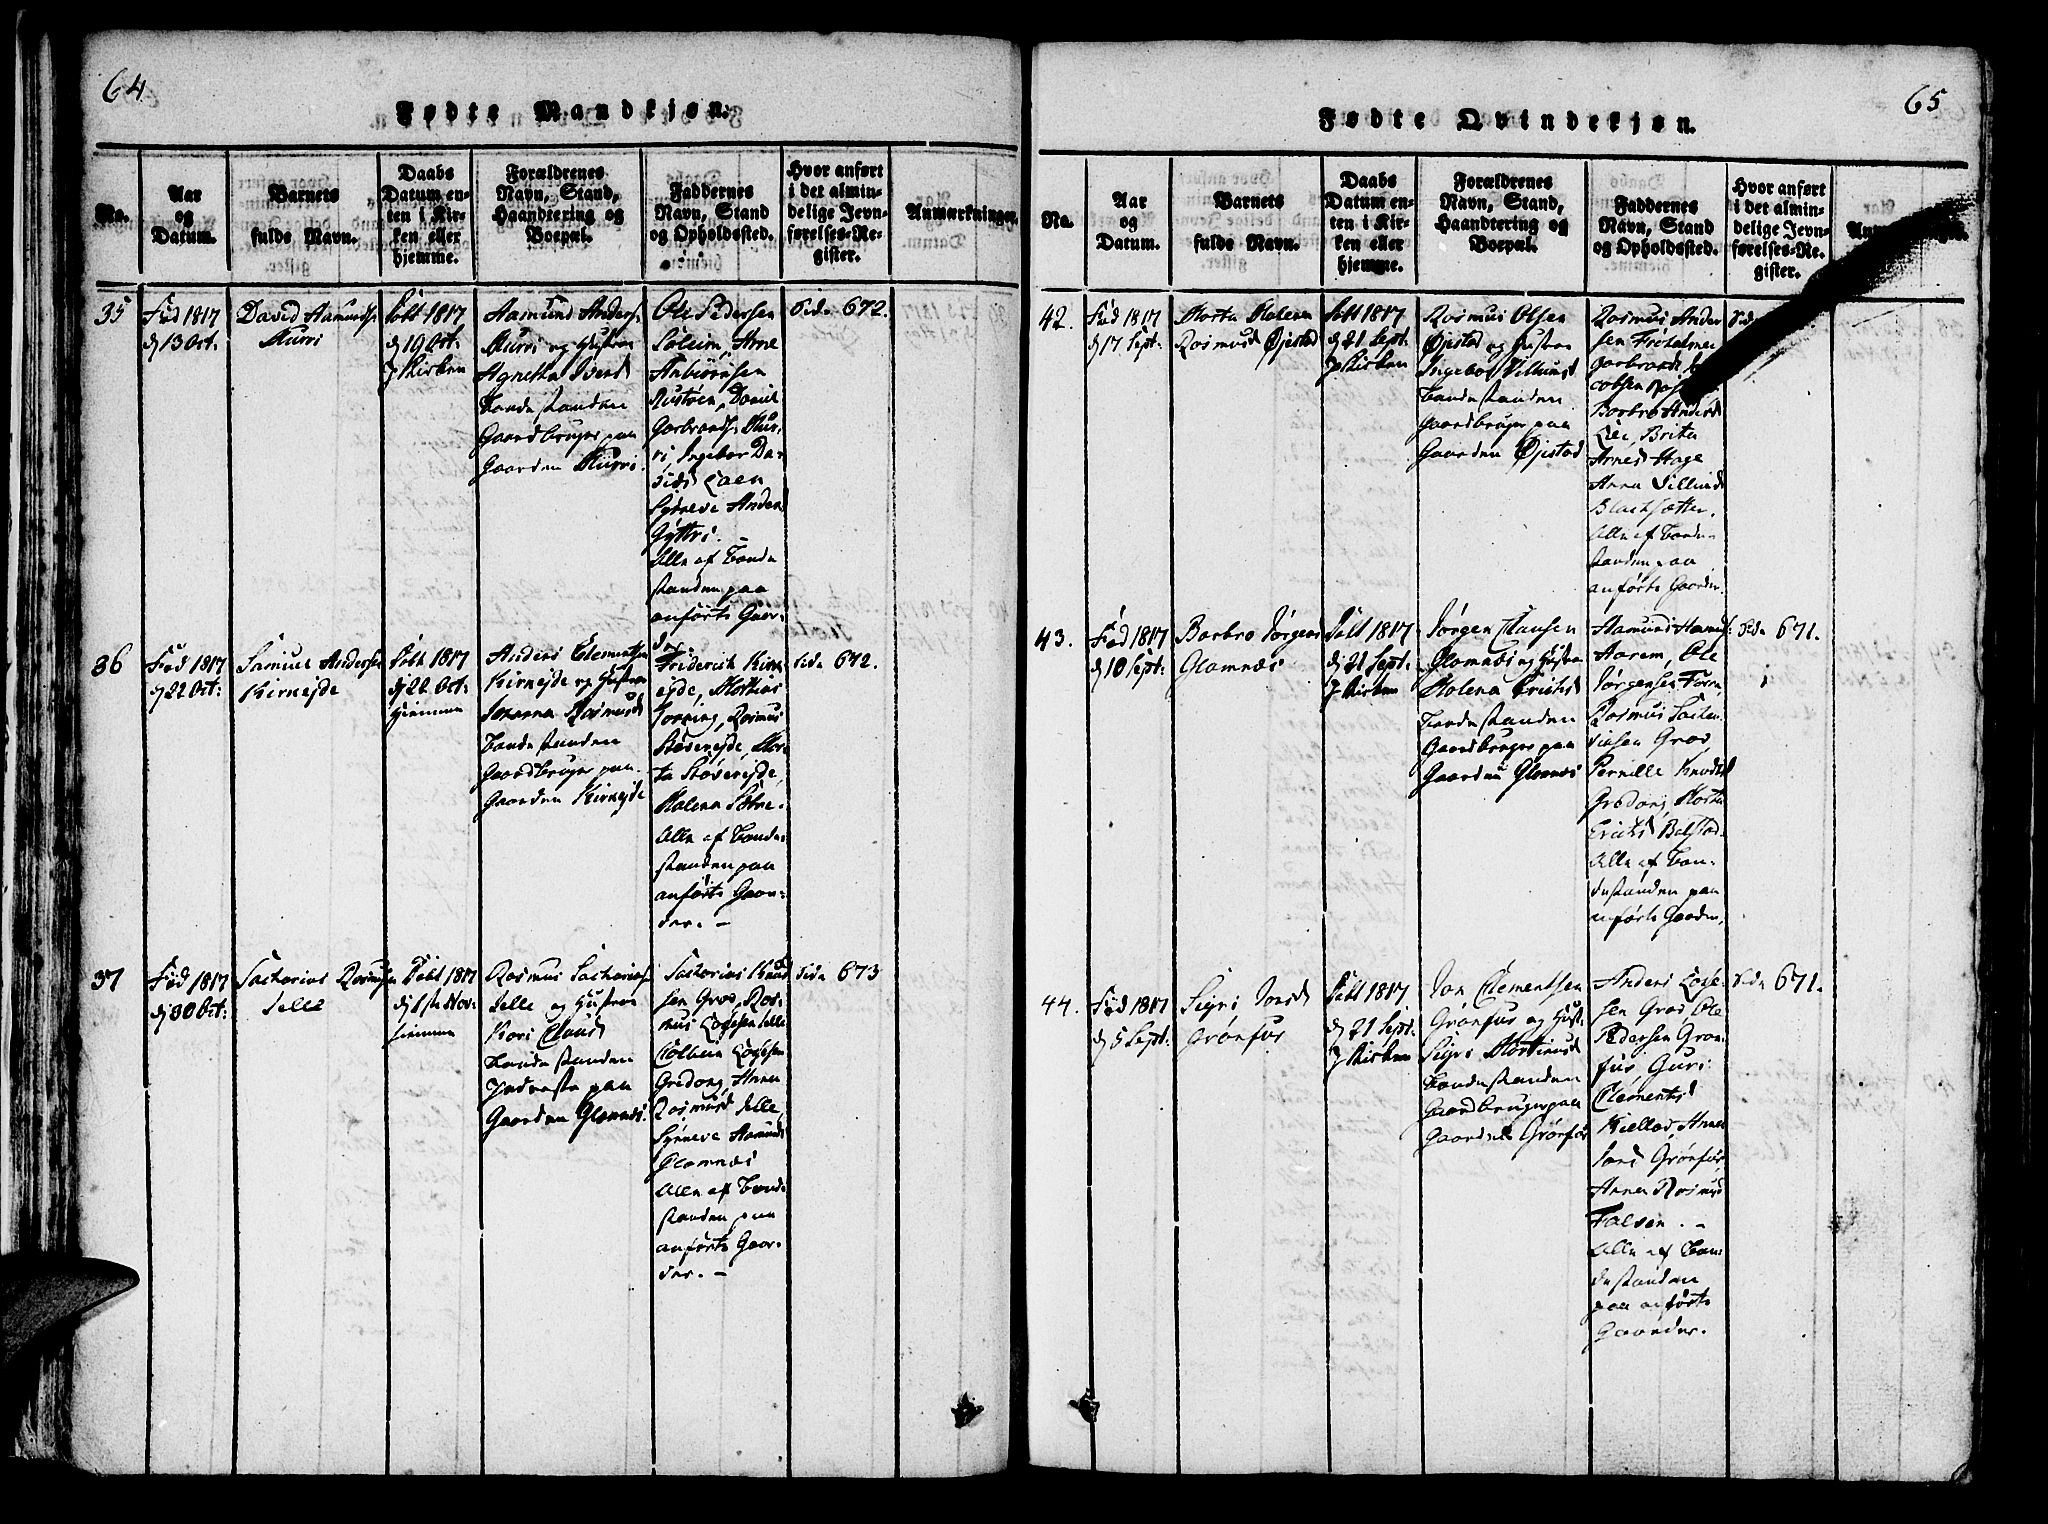 64
Fødte Mandkjøn.
No.
Aar
og
Datum.
Barnets
fulde Navn.
Daabs
Datum en-
ten i Kir-
ken eller
hjemme.
Forældrenes
Navn, Stand,
Haandtering og
Boepæl.
Faddernes
Navn, Stand
og Opholdssted.
Hvor anført
i det almin-
delige Jevn-
førelses-Re-
gister.
Anmærkninger.
35
Fød 1817
d 13 Oct:
David Aamunds:
Murri
Døbt 1817
d 19 Oct:
J Kirken
Aamund Anders:
Murri og Hustrue
Agnetha Iversd
Bondestanden
Gaardbruger paa
Gaarden Murri
Ole Pedersen
Soleim, Arne
Anbiørnsen
Rustøen, Daniel
Garbrands: Mur-
ri, Ingebor Da-
vids Loen
Sydneve Anders
Gyttri.
Alle af Bonde
standen paa
anførte Gaar-
der.
Side 672.
36
Fød 1817
d 22 Oct:
Samuel Andersen
Kirnejde
Døbt 1817
d 22 Oct:
Hiemme
Anders Clementsen
Kirnejde og Hustrue
Johanna Rasmusd
Bondestanden
Gaardbruger paa
Gaarden Kirnejde
Friderich Kirn-
ejde, Mathias
Rasmus
Støverejde, Mar-
ta Støverejde,
Malena
Alle af Bonde-
standen paa
anførte Gaar-
der. –
Side 672.
37
Fød 1817
d 30 Oct:
Sacharias Rasmusen
Selle
Døbt 1817
d 1ste Nov:
hiemme
Rasmus Sacharias:
Selle og Hustrue
Kari Clausd
Bondestanden
Inderste paa
Gaarden Glomnæs.
Sacharias Knud
sen Grov, Ras-
mus Ladesen Selle
Colbein Ladesen
Gredong, Anna
Rasmusd Selle,
Synneve Aamunds
Glomnæs
Alle af Bonde-
standen paa
anførte Gaar-
der. –
Side 673
65
Fødte Qvindekjøn.
No.
Aar
og
Datum.
Barnets
fulde Navn.
Daabs
Datum en-
ten i Kir-
ken eller
hjemme.
Forældrenes
Navn, Stand,
Haandtering og
Boepæl.
Faddernes
Navn, Stand
og Opholdssted.
Hvor anført
i det almin-
delige Jevn-
førelses-Re-
gister.
42.
Fød 1817
d 17 Sept:
Marta Malena
Rasmusd Øjestad
Døbt 1817
d 21 Sept:
J Kirken
Rasmus Olsen
Øjestad og Hustrue
Ingebor Villumsd
Bondestanden
Gaardbruger paa
Gaarden Øjestad
Rasmus Ander
sen
Garbrand
cobsen
Barbro Andersd
Lee, Brita
Arnes Hage
Anna Villumsd
Blachsætter.
Alle af Bonde-
standen paa
anførte Gaarder.
43.
Fød 1817
d 10 Sept:
Barbro Jørgens
Glomnæs
Døbt 1817
d 21 Sept:
J Kirken
Jørgen Clausen
Glomnæs og Hustrue
Malena Erichsd
Bondestanden
Gaardbruger paa
Gaarden Glomnæs
Aamund
Aarem, Ole
Jørgensen
Rasmus Sacha-
riasen Grov,
Pernille Knudsd
Gredong, Marta
Erichsd Bolstad.
Alle af Bon-
destanden paa
anførte Gaarder,
Side 671.
44.
Fød 1817
d 5 Sept:
Sigri Jonsd
Grønfur
Døbt 1817
d 21 Sept:
J Kirken
Jon Clementsen
Grønfur og Hust:
Sigri Mortensd
Bondestanden
Gaardbruger paa
Gaarden Grønfur
Anders Lade-
sen Grov, Ole
Pedersen Grøn-
fur, Guri
Clementsd
Kiellad, Anna
Jons Grønfur,
Anna Rasmusd
Falsen. –
Alle af Bon-
destanden
paa anførte
Gaarder.
Side 671.